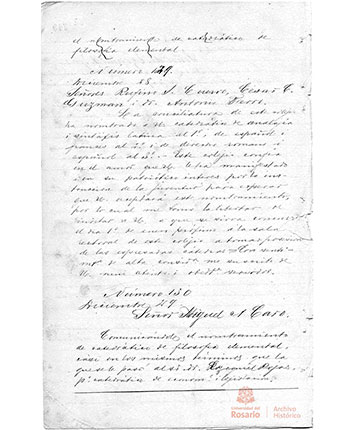 el nombramiento de catedrático de
filosofía elemental.
Número 129.
Diciembre 28.
Señores Rufino J. Cuervo, Cesar C.
Guzman i dr. Antonio Ferro.
La consiliatura de este colejio
ha nombrado a U. catedrático de analojía
i sintaxis latina al 1º, de español i
frances al 2º i de derecho romano i
español al 3º. Este colejio confia
en el amor que U. le ha manifestado
i en su patriótico interes por la ins-
truccion de la juventud para esperar
que U. aceptará este nombramiento,
por lo cual me tomo la libertad de
invitar a U. a que se sirva concurrir
el dia 1º de enero próximo a la sala
rectoral de este colejio a tomar posesion
de las espresadas cátedras. Con senti-
mtos de alta considn me suscribo de
U. mui atento i obedte servidor.
Número 130
Diciembre 29.
Señor Miguel A. Caro.
Comunicándole el nombramiento
de catedrático de filosofía elemental,
casi en los mismos términos que la
que se pasó al sr. dr. Ezequiel Rojas
pa catedrático de
Universidad del
Rosario
Archivo
Histórico